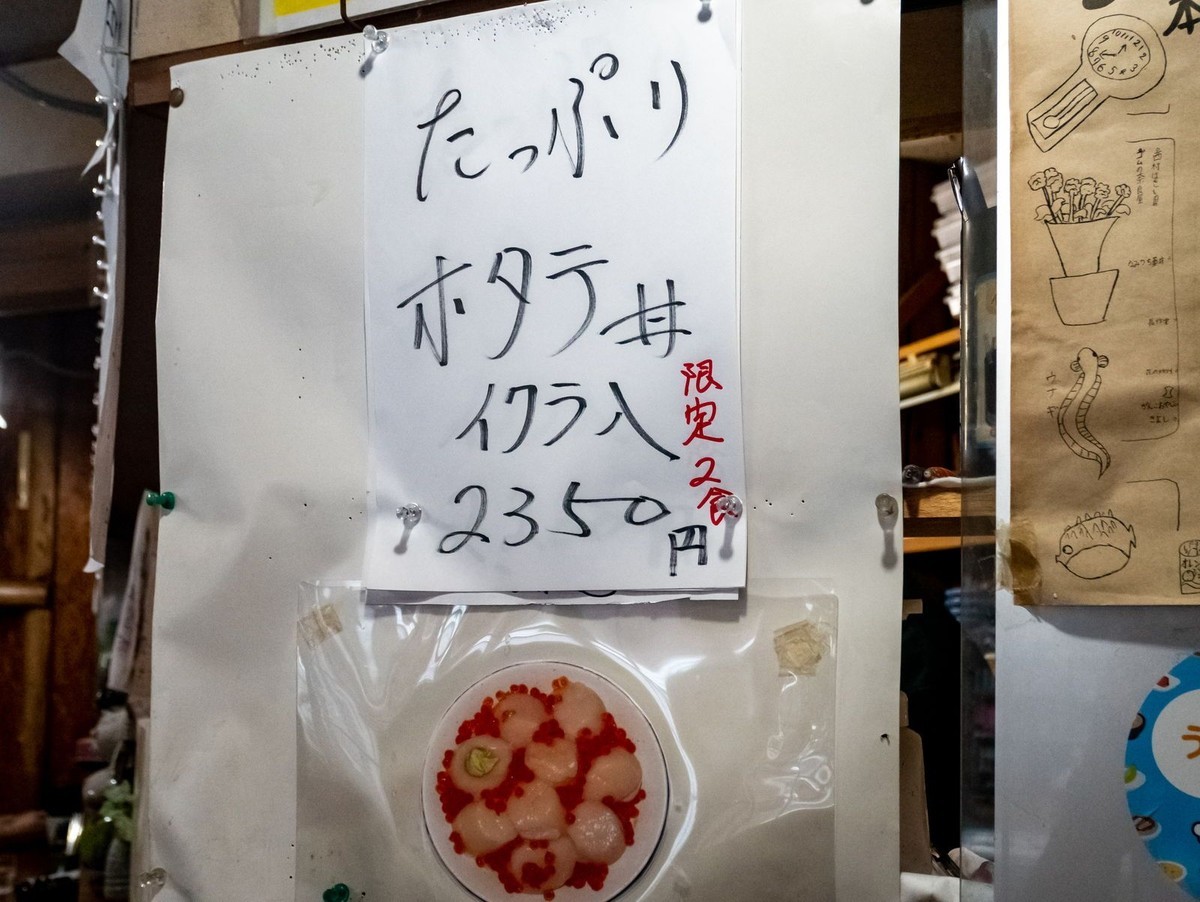 たっぷり
ホタテ丼
イクラ入
2350円
限定2食
本
ウナギ